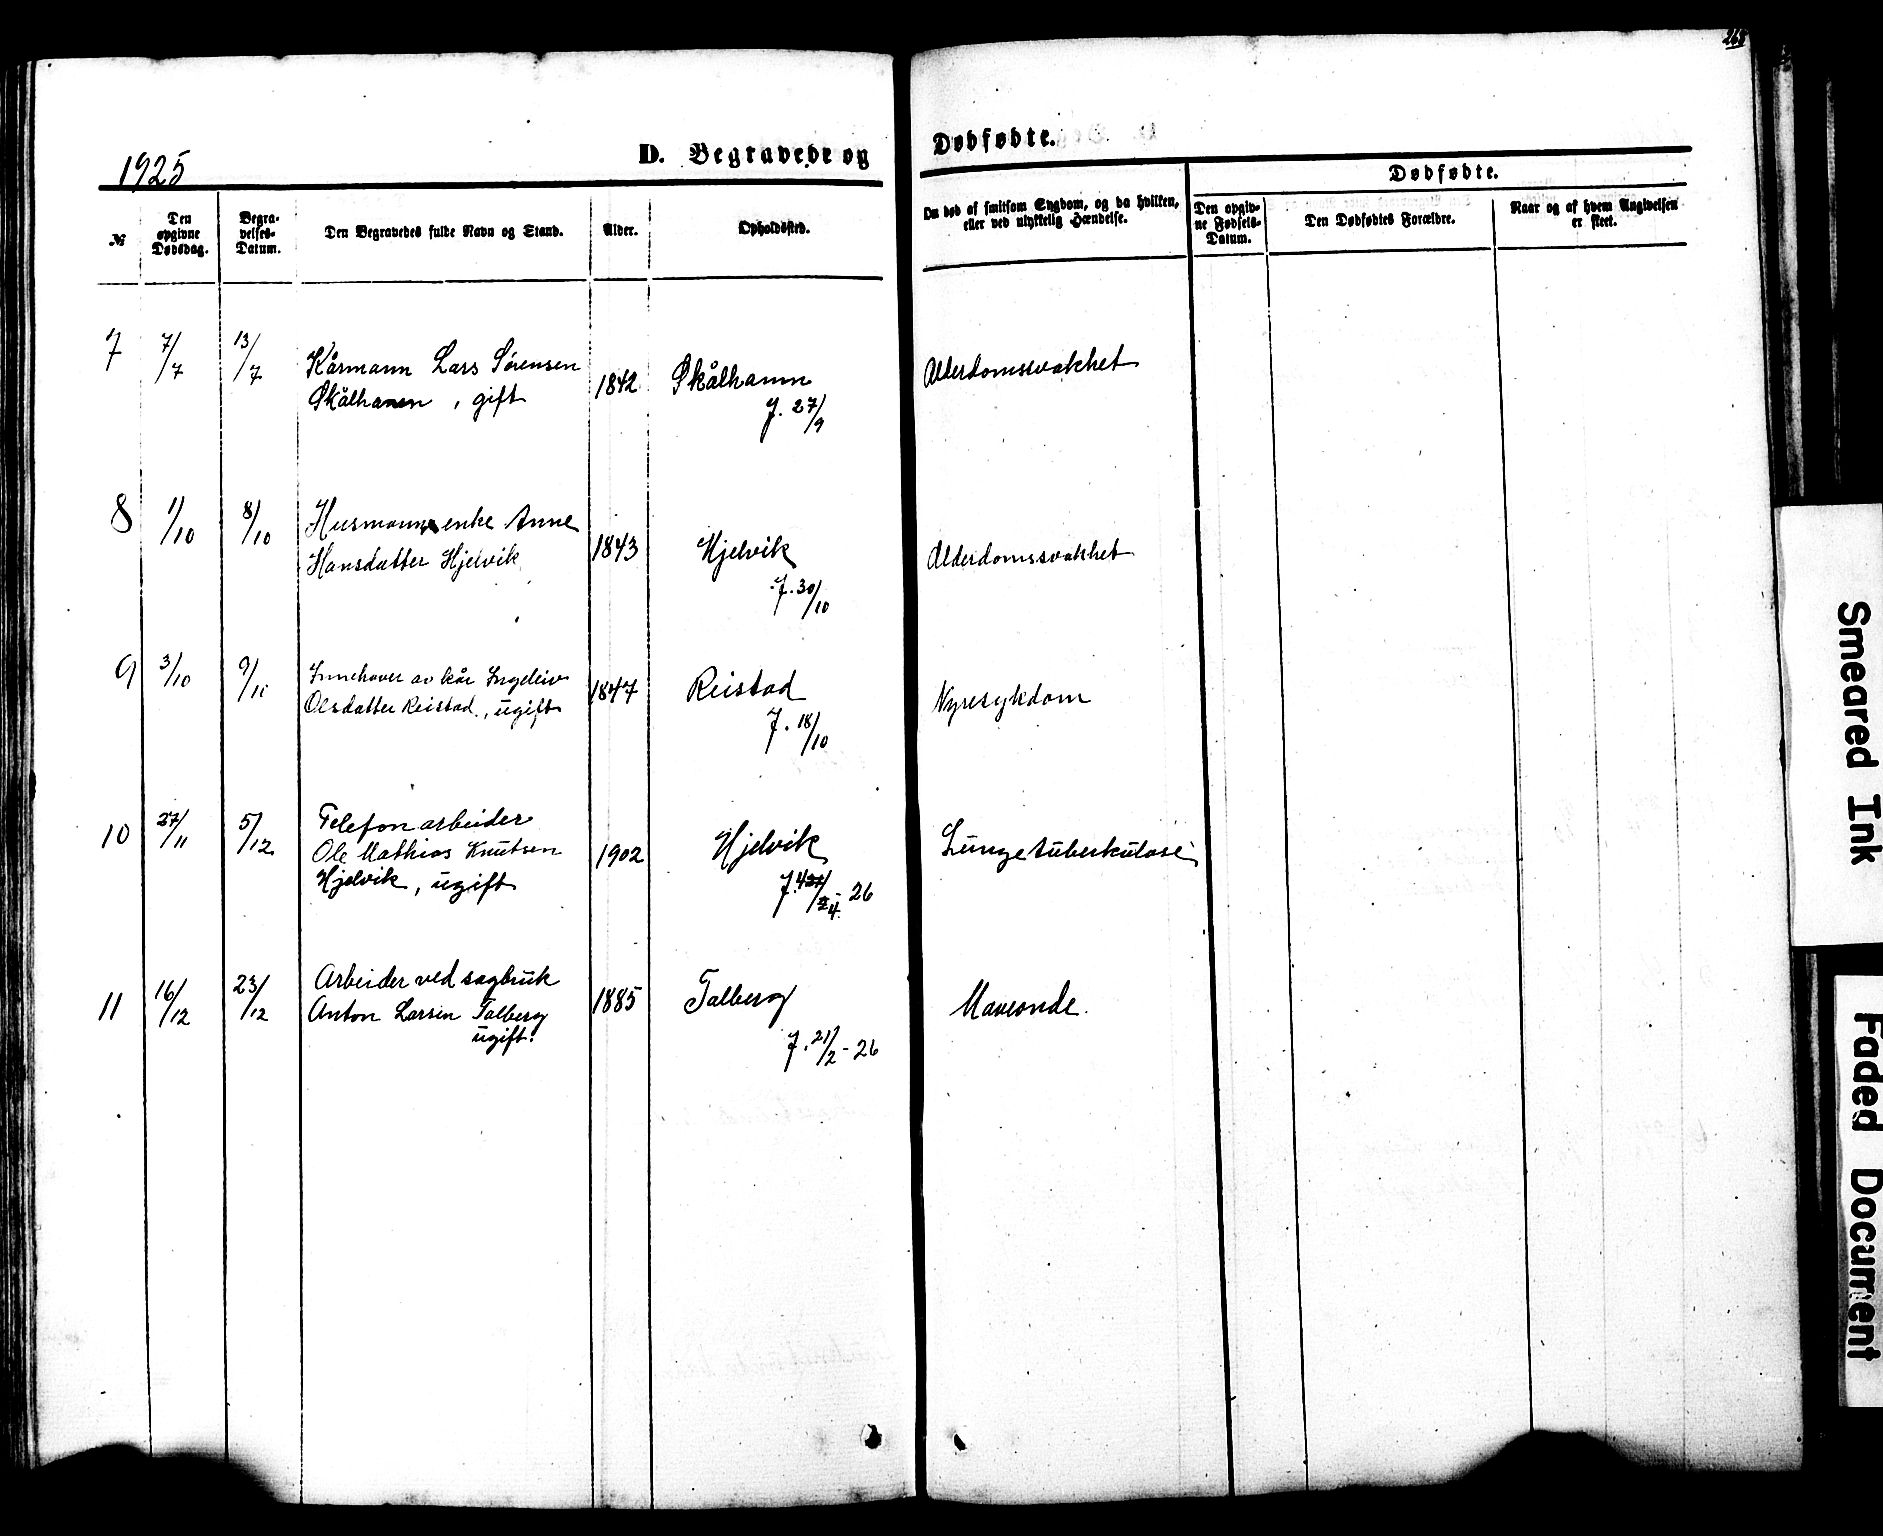 268
1925
D. Begravede og Dødfødte.
Dødfødte.
№
Den opgivne Dødsdag.
Begravelses-Datum.
Den Begravedes fulde Navn og Stand.
Alder.
Opholdssted.
Om død af smitsom Sygdom, og da hvilken,
eller ved ulykkelig Hændelse.
Den opgivne Fødsels-Datum.
Den Dødfødtes Forældre.
Naar og af hvem Angivelsen
er skeet.
7 7/7 13/7 Kårmann Lars Sørensen
Skålhamn, gift 1842 Skålhamn Alderdomssvakhet
J. 27/9
8 1/10 8/10 Husmannsenke Anne
Hansdatter Hjelvik 1843 Hjelvik Alderdomssvakhet
J. 30/10
9 3/10 9/10 Innehaver av kår Ingeleiv
Olsdatter Reistad, ugift 1847 Reistad Nyresykdom
J. 18/10
10 27/11 5/12 Telefonarbeider
Ole Mathias Knutsen 1902 Hjelvik Lungetuberkulose
Hjelvik, ugift J. 4/4 - 26
11 16/12 23/12 Arbeider ved sagbruk
Anton Larsen Talberg 1885 Talberg Maveonde.
ugift. J. 21/2 - 26
Smeared Ink
Faded Document